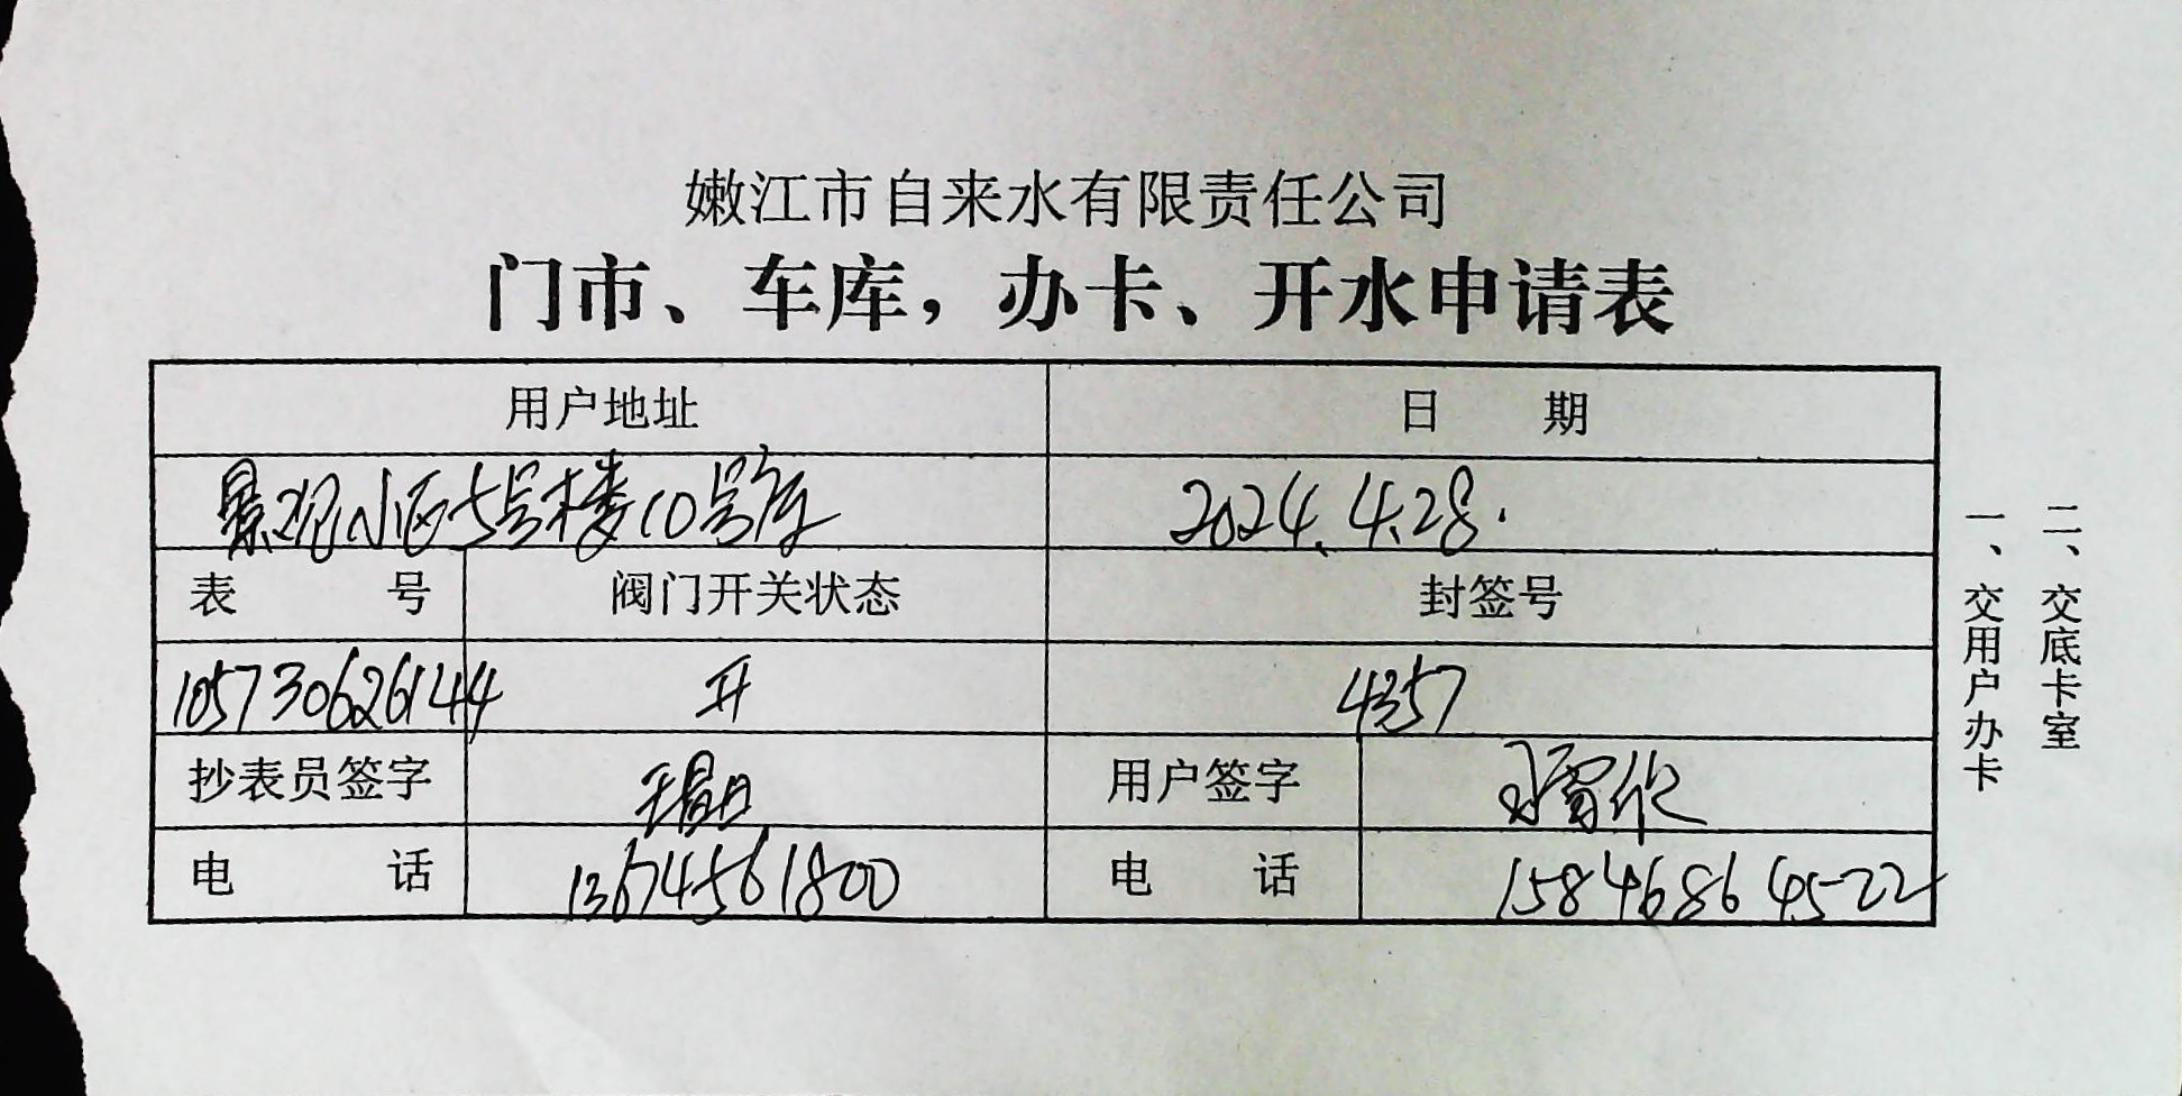 嫩江市自来水有限责任公司
门市、车库，办卡、开水申请表
用户地址 日 期
景观小区5号楼10号库 2024.4.28.
表 号 阀门开关状态 封签号
105730626144 开 4357
抄表员签字 用户签字
电 话 13674561800 电 话 15846864522
一、交用户办卡
二、交底卡室